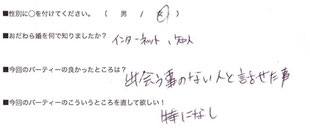 ■性別に○を付けてください。 （ 男 / 女 ）
■おだわら婚を何で知りましたか？ インターネット、知人
■今回のパーティーの良かったところは？
出会う事のない人と話せた事
■今回のパーティーのこういうところを直して欲しい！
特になし